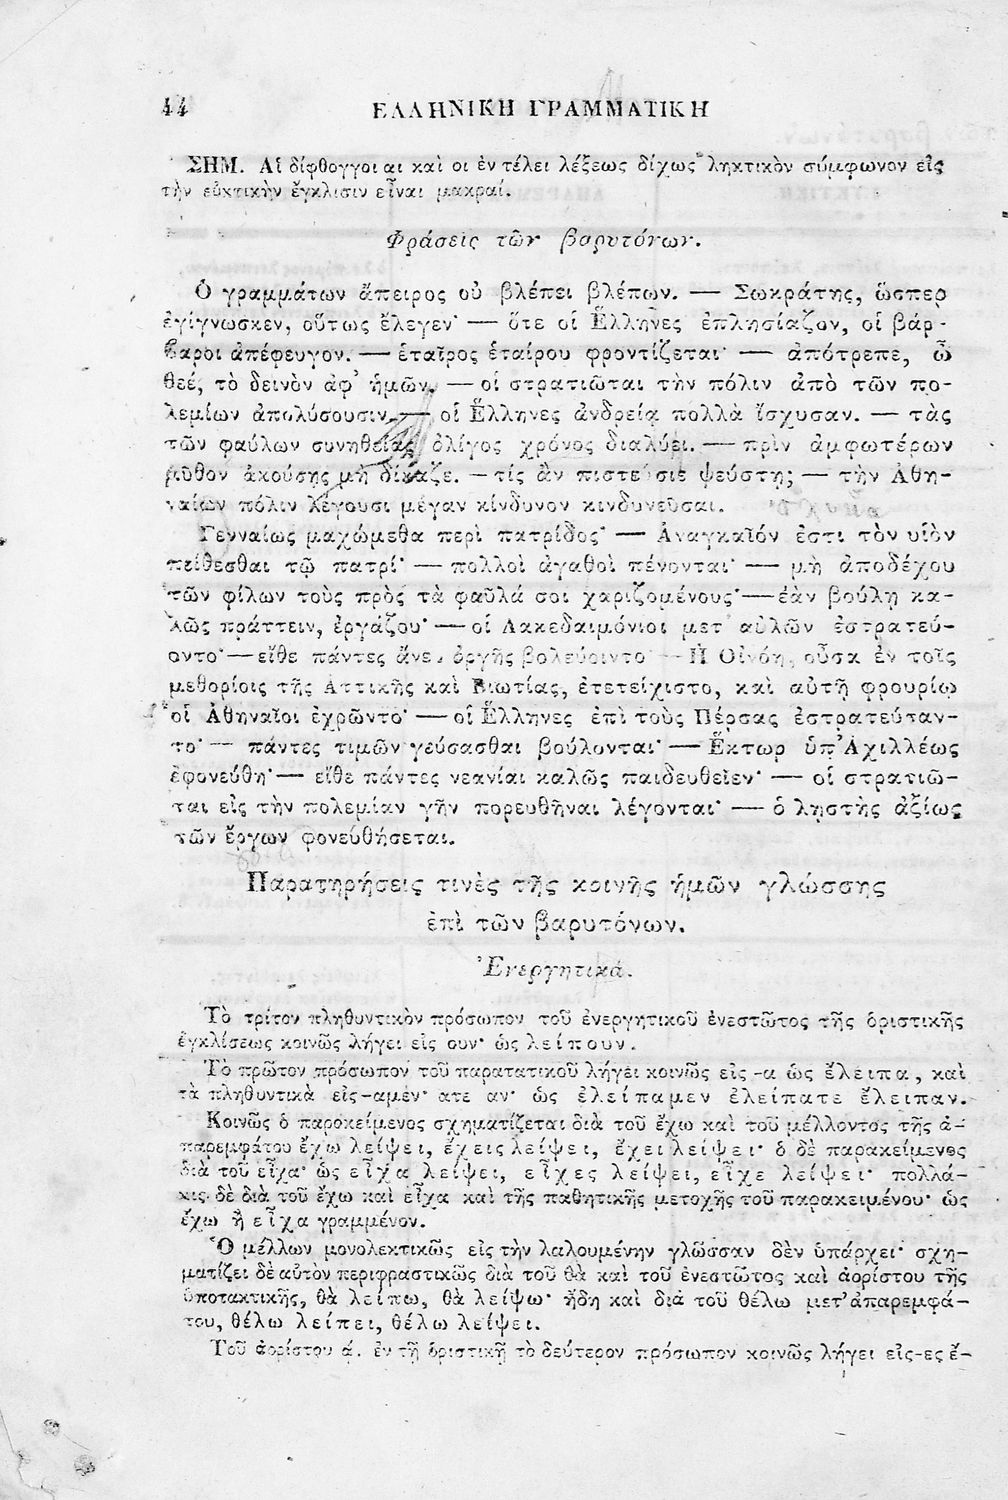 44 ΕΛΛΗΝΙΚΗ ΓΡΑΜΜΑΤΙΚΗ
ΣΗΜ. Αἱ δίφθογγοι αι καὶ οι ἐν τέλει λέξεως δίχως ληκτικὸν σύμφωνον εἰς
τὴν εὐκτικὴν ἔγκλισιν εἶναι μακραί.
Φράσεις τῶν βαρυτόνων.
Ὁ γραμμάτων ἄπειρος οὐ βλέπει βλέπων. — Σωκράτης, ὥσπερ
ἐγίγνωσκεν, οὕτως ἔλεγεν· — ὅτε οἱ Ἕλληνες ἐπλησίαζον, οἱ βάρ-
βαροι ἀπέφευγον. — ἑταῖρος ἑταίρου φροντίζεται· — ἀπότρεπε, ὦ
θεέ, τὸ δεινὸν ἀφ' ἡμῶν. — οἱ στρατιῶται τὴν πόλιν ἀπὸ τῶν πο-
λεμίων ἀπολύσουσιν. — οἱ Ἕλληνες ἀνδρείᾳ πολλὰ ἴσχυσαν. — τὰς
τῶν φαύλων συνηθείας ὀλίγος χρόνος διαλύει. — πρὶν ἀμφωτέρων
μῦθον ἀκούσῃς μὴ δίκαζε. — τίς ἂν πιστεύσειε ψεύστῃ; — τὴν Ἀθη-
ναίων πόλιν λέγουσι μέγαν κίνδυνον κινδυνεῦσαι.
Γενναίως μαχώμεθα περὶ πατρίδος· — Ἀναγκαῖόν ἐστι τὸν υἱὸν
πείθεσθαι τῷ πατρί· — πολλοὶ ἀγαθοὶ πένονται· — μὴ ἀποδέχου
τῶν φίλων τοὺς πρὸς τὰ φαῦλά σοι χαριζομένους· — ἐὰν βούλῃ κα-
λῶς πράττειν, ἐργάζου· — οἱ Λακεδαιμόνιοι μετ' αὐλῶν ἐστρατεύ-
οντο· — εἴθε πάντες ἄνευ ὀργῆς βολεύοιντο· — Ἡ Οἰνόη, οὖσα ἐν τοῖς
μεθορίοις τῆς Ἀττικῆς καὶ Βιωτίας, ἐτετείχιστο, καὶ αὐτῇ φρουρίῳ
οἱ Ἀθηναῖοι ἐχρῶντο· — οἱ Ἕλληνες ἐπὶ τοὺς Πέρσας ἐστρατεύσαν-
το· — πάντες τιμῶν γεύσασθαι βούλονται· — Ἕκτωρ ὑπ' Ἀχιλλέως
ἐφονεύθη· — εἴθε πάντες νεανίαι καλῶς παιδευθεῖεν· — οἱ στρατιῶ-
ται εἰς τὴν πολεμίαν γῆν πορευθῆναι λέγονται· — ὁ λῃστὴς ἀξίως
τῶν ἔργων φονευθήσεται.
Παρατηρήσεις τινὲς τῆς κοινῆς ἡμῶν γλώσσης
ἐπὶ τῶν βαρυτόνων.
Ἐνεργητικά.
Τὸ τρίτον πληθυντικὸν πρόσωπον τοῦ ἐνεργητικοῦ ἐνεστῶτος τῆς ὁριστικῆς
ἐγκλίσεως κοινῶς λήγει εἰς ουν· ὡς λείπουν.
Τὸ πρῶτον πρόσωπον τοῦ παρατατικοῦ λήγει κοινῶς εἰς -α ὡς ἔλειπα, καὶ
τὰ πληθυντικὰ εἰς -αμεν· ατε αν· ὡς ἐλείπαμεν ἐλείπατε ἔλειπαν.
Κοινῶς ὁ παροκείμενος σχηματίζεται διὰ τοῦ ἔχω καὶ τοῦ μέλλοντος τῆς ἀ-
παρεμφάτου ἔχω λείψει, ἔχεις λείψει, ἔχει λείψει· ὁ δὲ παρακείμενος
διὰ τοῦ εἶχα· ὡς εἶχα λείψει, εἶχες λείψει, εἶχε λείψει· πολλά-
κις δὲ διὰ τοῦ ἔχω καὶ εἶχα καὶ τῆς παθητικῆς μετοχῆς τοῦ παρακειμένου· ὡς
ἔχω ἢ εἶχα γραμμένον.
Ὁ μέλλων μονολεκτικῶς εἰς τὴν λαλουμένην γλῶσσαν δὲν ὑπάρχει· σχη-
ματίζει δὲ αὐτὸν περιφραστικῶς διὰ τοῦ θὰ καὶ τοῦ ἐνεστῶτος καὶ ἀορίστου τῆς
ὑποτακτικῆς, θὰ λείπω, θὰ λείψω· ἤδη καὶ διὰ τοῦ θέλω μετ' ἀπαρεμφά-
του, θέλω λείπει, θέλω λείψει.
Τοῦ ἀορίστου ά. ἐν τῇ ὁριστικῇ τὸ δεύτερον πρόσωπον κοινῶς λήγει εἰς -ες ἔ-